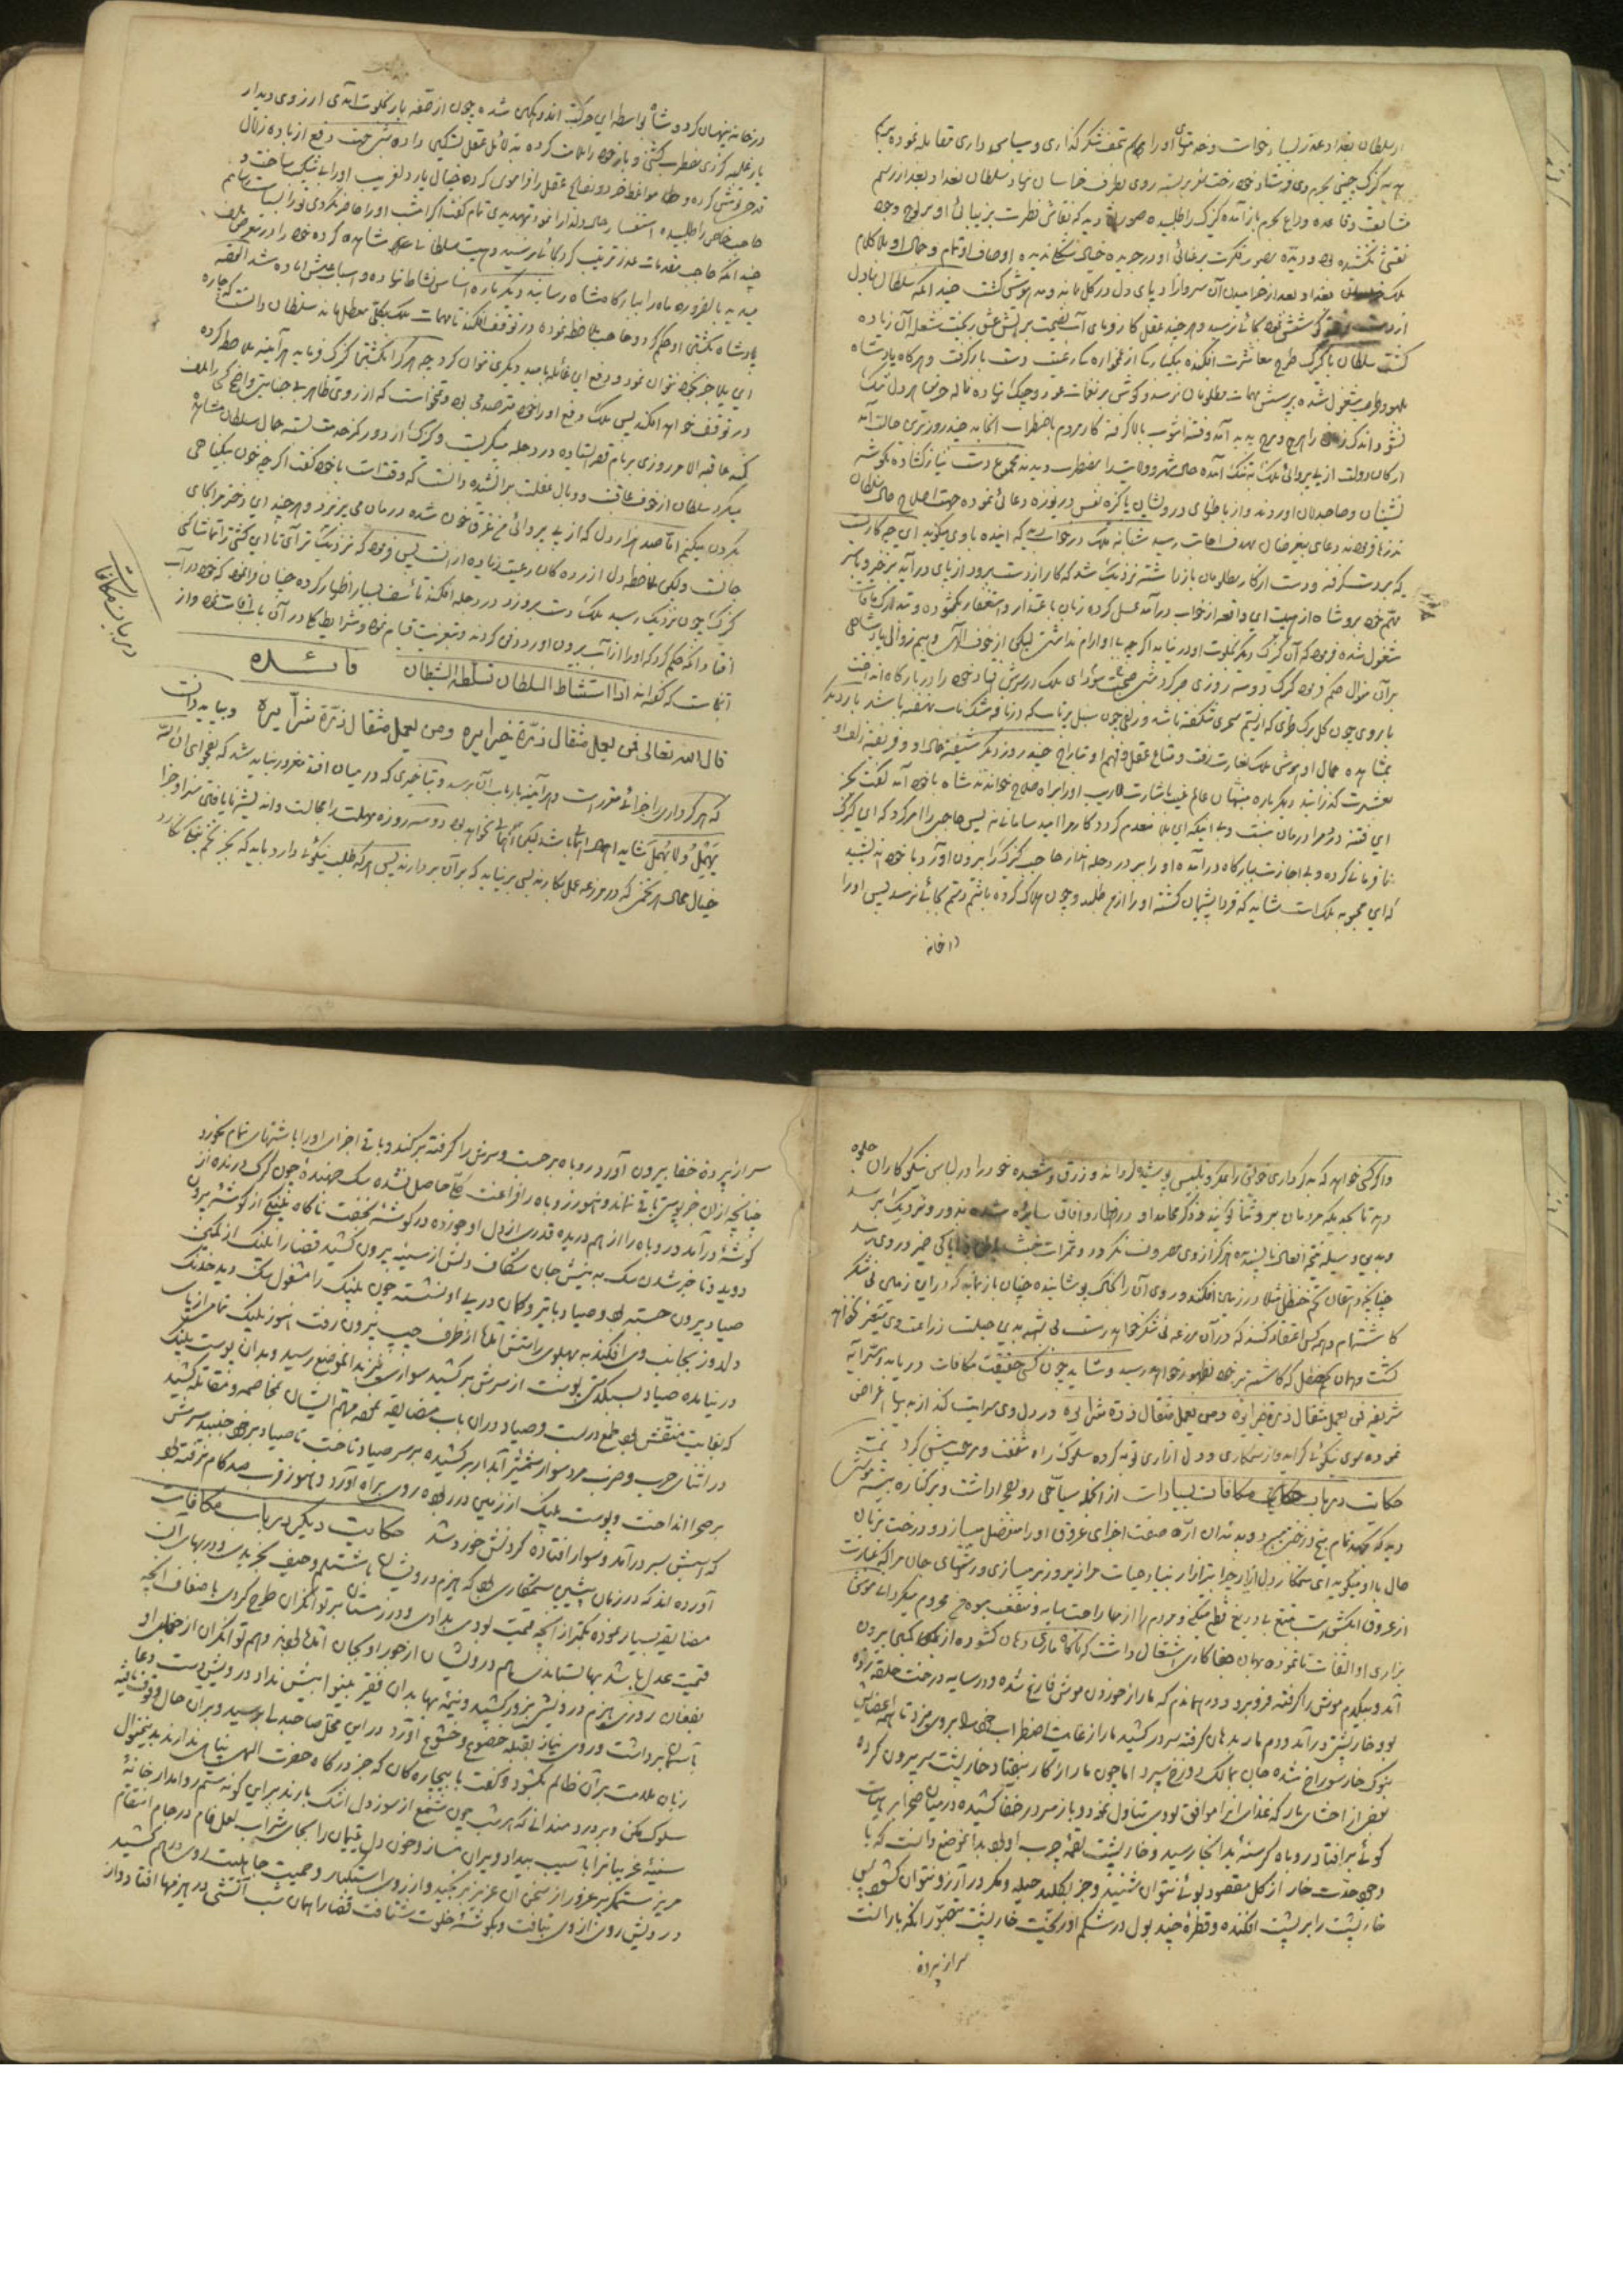 از سلطان بغداد عذر بسیار خواست و خدمتهای او را بهم تحف شکرگذاری و سپاس داری مقابله نموده
کنیزک چینی بحرم وی فرستاد خود رخت سفر بربسته روی بطرف خراسان نهاد سلطان بغداد بعد از رسم
مشایعت وقاعده وداع بحرم باز آمده کنیزک را طلبیده صورتی دید که نقاش فطرت بزیبائی او بر لوح وجود
نقشی نکشیده بود و دیده مصور فکرت برعنائی او در جریده خیال شکلی ندیده اوصاف او تمام و جمال او بلا کلام
ملک بغداد بعد از خرامیدن آن سرو آزاد پای دل در گل مانده و مدهوش گشت چندانکه سلطان با دل
از دست رفته کوشش نمود بجائی نرسید و هر چند عقل کارفرمای آب نصیحت بر آتش عشق ریخت شعله آن زیاده
گشت سلطان با کنیزک طرح معاشرت افکنده بیکبارگی از غمخوارگی رعیت دست باز گرفت و هر گاه پادشاه
بلهو و طرب مشغول شده بپرسش مهمات مظلومان نرسد و گوش بر نغمات عود و چنگ نهاده ناله حزین هر دل تنگ
نشنود اندک زمانی را هرج و مرج پدید آمد و فتنه آشوب بالا گرفته کار مردم باضطراب انجامد چند روز برین حالت آمد
ارکان دولت از بی پروائی ملک به تنگ آمده حال شهر و ولایت را مضطرب دیدند مجموع دست نیاز گشاده بگوشه
نشینان و صاحبدلان آوردند و از باطنهای درویشان پاکیزه نفس دریوزه دعائی نموده جهت اصلاح حال سلطان
نذرها فرمودند دعای بیغرضان بهدف اجابت رسید شبانه ملک در خواب دید که آینده با وی میگوید ای چه کار است
که بر دست گرفته و دست از کار مظلومان باز داشته نزدیک شد که کار از دست برود از پای در آید برخیز و بر سر
مهم خود برو شاه از هیبت این واقعه از خواب درآمد غسل کرده زبان باعتذار و استغفار بگشود و بتدارک مافات
مشغول شده فرمود که آن کنیزک دیگر بخلوت او در نیاید اگر چه بی او آرام نداشت لیکن از خوف الهی و بیم زوال پادشاهی
بر آن منوال حکم فرمود کنیزک دو سه روزی صبر کرد شبی صحبت سودای ملک در سرش افتاد خود را در بارگاه انداخت
با روی چون گل برگ طری که از نسیم سحری شکفته باشد و زلفی چون سنبل پرتاب که در نافه مشک ناب نهفته باشد بار دیگر
بمشاهده جمال او هوش ملک بغارت رفت و متاع عقل و فهم او بتاراج چند روز دیگر شیفته خال او و فریفته زلف او
بعشرت گذرانید دیگر باره منهیان عالم غیب باشارت لاریب او را براه صلاح خواندند شاه با خود آمد گفت بخیر
این فتنه در مرا درمان نیست و بی اینکه این بلا منعدم گردد کار مرا امید سامان نه پس حاجبی را امر کرد که این کنیزک
نافرمانی کرده و بی اجازت ببارگاه در آمده او را ببر در دجله انداز حاجب کنیزک را بیرون آورد با خود اندیشید
که این محبوبه ملک است شاید که فردا پشیمان گشته او را از من طلبد و چون هلاک کرده باشم دستم بجائی نرسد پس او را
در خانه
در خانه پنهان کرد و شاه بواسطه این حرکت اندوهگین شده چون از صفه بار بخلوت آمدی آرزوی دیدار
یار غلبه کردی مضطرب گشتی و باز خود را ملامت کرده بدلائل عقل تسکین دادی شبی جهت دفع از باده زلال
قدحی نوش کرده و حظا مواعظ خرد و نصایح عقل را فراموش کرده خیال یار دلفریب او را بی شکیب ساخت و
حاجب خاص را طلبیده استفسار حال دلدار نمود تهدیدی تمام گفت اگر امشب او را حاضر نگردی تو را بسیاست رسانم
چندانکه حاجب مقدمات عذر ترتیب کرد بجائی نرسید و هیبت سلطانی مشاهده کرده خود را در معرض تلف
میدید بالضروره ماه را ببارگاه شاه رسانید دیگر باره اساس نشاط نهاده و اسباب عیش آماده شد القصه
پادشاه بکشتن او حکم کرد و حاجب ملاحظه نموده در توقف افکند تا مهمات ملک بکلی معطل ماند سلطان دانست که چاره
این بلا جز بخود نتوان نمود و دفع این غائله بامید دیگری نتوان کرد چه هر که را بکشتن کنیزک فرماید هر آینه ملاحظه کرده
در توقف خواهد افکند پس ملک دفع او را خود مترصد می بود و نمیخواست که از روی ظاهر بی جنایتی واضح کسی را تلف
کند عاقبة الامر روزی بر بام قصر ایستاده در دجله میگریست و کنیزک از دور کمر خدمت بسته جمال سلطان مشاهده
میکرد سلطان از خوف عاقبت و وبال غفلت برآشفته دانست که وقت است با خود گفت اگر چه خون بیگناهی
بگردن میکنم اما صد هزار دل که از بی پروائی من غرق خون شده درمان می پذیرد و هر چند این دختر مرا بجای
جانست ولیکن ملاحظه دل آزردگان رعیت زیاده از آنست پس فرمود که نزدیک تر آی تا این کشتی را تماشا کنی
کنیزک چون نزدیک رسید ملک دست بر وی زد در دجله افکند تأسف بسیار اظهار کرده چنان فرا نمود که خود در آب
افتاد آنگه حکم کرد که او را از آب بیرون آورد دفن کردند و بتعزیت قیام نمود و شرایط کار در آن باب اقامت نمود و از
اینجاست که گفته اند اذا استشاط السلطان تسلط الشیطان فائده
قال الله تعالی فمن یعمل مثقال ذرة خیرا یره ومن یعمل مثقال ذرة شرا یره و بباید دانست
که هر کرداری را جزائی مقرر است و هر آینه بارباب آن برسد و بتأخیری که در میان افتد مغرور نباید شد که بفحوای ان الله
یمهل و لا یهمل شاید امهال باشد لیکن اهمال نخواهد بود دو سه روزه مهلت را مجالست و اندیشه نایافتن سزا و جزا
خیال محال هر تخمی که در مزرعه عمل بکارند بسی برنیاید که بر آن بردارند پس هر که طلب نیکوئی دارد باید که بجز تخم نیکی نکارد
در بیان مکافات است
و اگر کسی خواهد که بدکرداری خویش را بمکر و تلبیس پوشیده دارد و زرق و شعبده خود را در لباس نیکوکاران جلوه
دهد تا بحدیکه مردمان برو ثنا گویند و ذکر محامد او در اقطار و آفاق سایر شده بدور و نزدیک برسد
بدین وسیله نتیجه افعال ناپسندیده هرگز از وی مصروف نگردد و ثمرات خبث ضمیر در وی برسد
چنانکه دهقان تخم حنظل مثلا در زمین افکند و روی آن را بخاک بپوشاند و چنان باز نماید که در این زمین نی شکر
کاشته ام و همه کس اعتقاد کنند که در آن مزرعه نی شکر خواهد رست بی شبهه بدین حیلت زراعت وی متغیر نخواهد
گشت و همان تخم حنظل که کاشته بر خود بظهور خواهد رسید و شاید چون کسی حقیقت مکافات دریابد و سر آیه
شریفه فمن یعمل مثقال ذرة خیرا یره ومن یعمل مثقال ذرة شرا یره در دل وی سرایت کند از بدیها اعراض
نموده سوی نیکوئی گراید و از ستمکاری و دل آزاری توبه کرده سلوک راه شفقت و مرحمت پیش گیرد تمت
حکایت در بیان مکافات بسیار است از آنجمله سیاحی روی بصحرا داشت و بر کناره بیشه موشی
دید که بجهد تمام بیخ درختی میبرد و بدندان اره صفت اجزای عروق او را منفصل میسازد و درخت بزبان
حال با او میگوید ای ستمکار دل آزار چرا بتیشه آزار بنیاد حیات مرا زیر و زبر میسازی و رشتهای جان مرا که عبارت
از عروق آبکش است بتیغ بیدریغ قطع میکنی و مردم را از راحت سایه و منفعت میوه من محروم میگردانی موش
بزاری او التفات نانموده بهمان جفاکاری اشتغال داشت که ناگاه ماری دهان گشوده از کمین بیرون
آمد و بیکدم موش را گرفته فرو برد و در همان دم که مار از خوردن موش فارغ شده و در سایه درخت حلقه زده
بود خارپشتی در آمد و دم مار بدهان گرفته سر در کشید مار از غایت اضطراب خود را بر وی میزد تا همه اعضایش
بنوک خار سوراخ شده جان بمالک دوزخ سپرد اما چون مار از کار بیفتاد خارپشت سر بیرون کرده
بعض از احشای مار که غذای او را موافق بودی تناول نمود و باز سر در خفا کشیده در میدان صحرا بر هیأت
گوئی بر افتاد روباه گرسنه بدانجا رسید و خارپشت لقمه چرب او بود بدان موضع دانست که با
وجود حدت خار از گل مقصود بوئی نتوان شنید و جز بکلید حیله و مکر در آرزو نتوان گشود پس
خارپشت را بر پشت افکنده و قطره چند بول در شکم او ریخت خارپشت بتصور آنکه بارانست
سر از پرده
سر از پرده خفا بیرون آورد روباه برجست و سرش را گرفته برکند و باقی اجزای او را باشتهای تمام بخورد
چنانچه از آن جز پوستی باقی نماند و هنوز روباه را فراغت کلی حاصل نشده سگ جهنده چون گرگ درنده از
گوشه در آمد و روباه را از هم دریده قدری از دل او خورده در گوشه بخفت ناگاه پلنگی از گوشه بیرون
دوید و تا خبر شدن سگ به نیش جان شکاف دلش از سینه بیرون کشید قضا را پلنگ از کمین
صیاد بیرون جسته بود و صیاد با تیر و کمان در پی او نشسته چون پلنگ را مشغول سگ دید خدنگ
دلدوز بجانب وی افکند به پهلوی راستش آمد از طرف چپ بیرون رفت هنوز پلنگ تمام از پای
در نیامده صیاد بسبکدستی پوست از سرش برکشید سواری نیز بدان موضع رسید و بدان پوست پلنگ
که بغایت منقش بود طمع در بست و صیاد در آن باب مضایقه نمود مهم ایشان بمخاصمه و مقاتله کشید
در اثنای حرب و ضرب مرد سوار شمشیر آبدار برکشیده بر سر صیاد تاخت تا صیاد بر خود جنبید سرش
بر صحرا انداخت و پوست پلنگ از زمین در ربوده روی براه آورد و هنوز قریب صد گام نرفته بود
که اسبش بسر در آمد و سوار افتاده گردنش خرد شد حکایت دیگر در باب مکافات
آورده اند که در زمان پیشین ستمکاری بود که هیزم درویشان باشتلم و حیف بخریدی و در بهای آن
مضایقه بسیار نموده کمتر از آنچه قیمت بودی بدادی و در زمستان بر توانگران طرح کردی باضعاف آنچه
قیمت عدل باشد بها بستاندی هم درویشان از جور او بجان آمده بودند و هم توانگران از جفای او
بفغان روزی هیزم درویشی بزور کشید و نیمه بها بدان فقیر بینوا بیش نداد درویش دست دعا
بآسمان برداشت و روی نیاز بقبله خضوع و خشوع آورد در این محل صاحبدلی برسید و بر آن حال وقوف یافته
زبان ملامت بر آن ظالم بگشود و گفت با بیچارگان که جز درگاه حضرت الهی پناهی ندارند بدینمنوال
سلوک مکن و بر دردمندانی که هر شب چون شمع از سوز دل اشک بارند بر این گونه ستم روا مدار خانه
سینه غریبان را بآسیب بیداد ویران مساز و خون دل یتیمان را بجای شراب لعل فام در جام انتقام
مریز ستمگر پر غرور از سخن آن عزیز برنجید و از روی استکبار و حمیت جاهلیت روی در هم کشید
درویش روی از وی بتافت و بگوشه خلوت شتافت قضا را همان شب آتشی در هیزمها افتاد و از